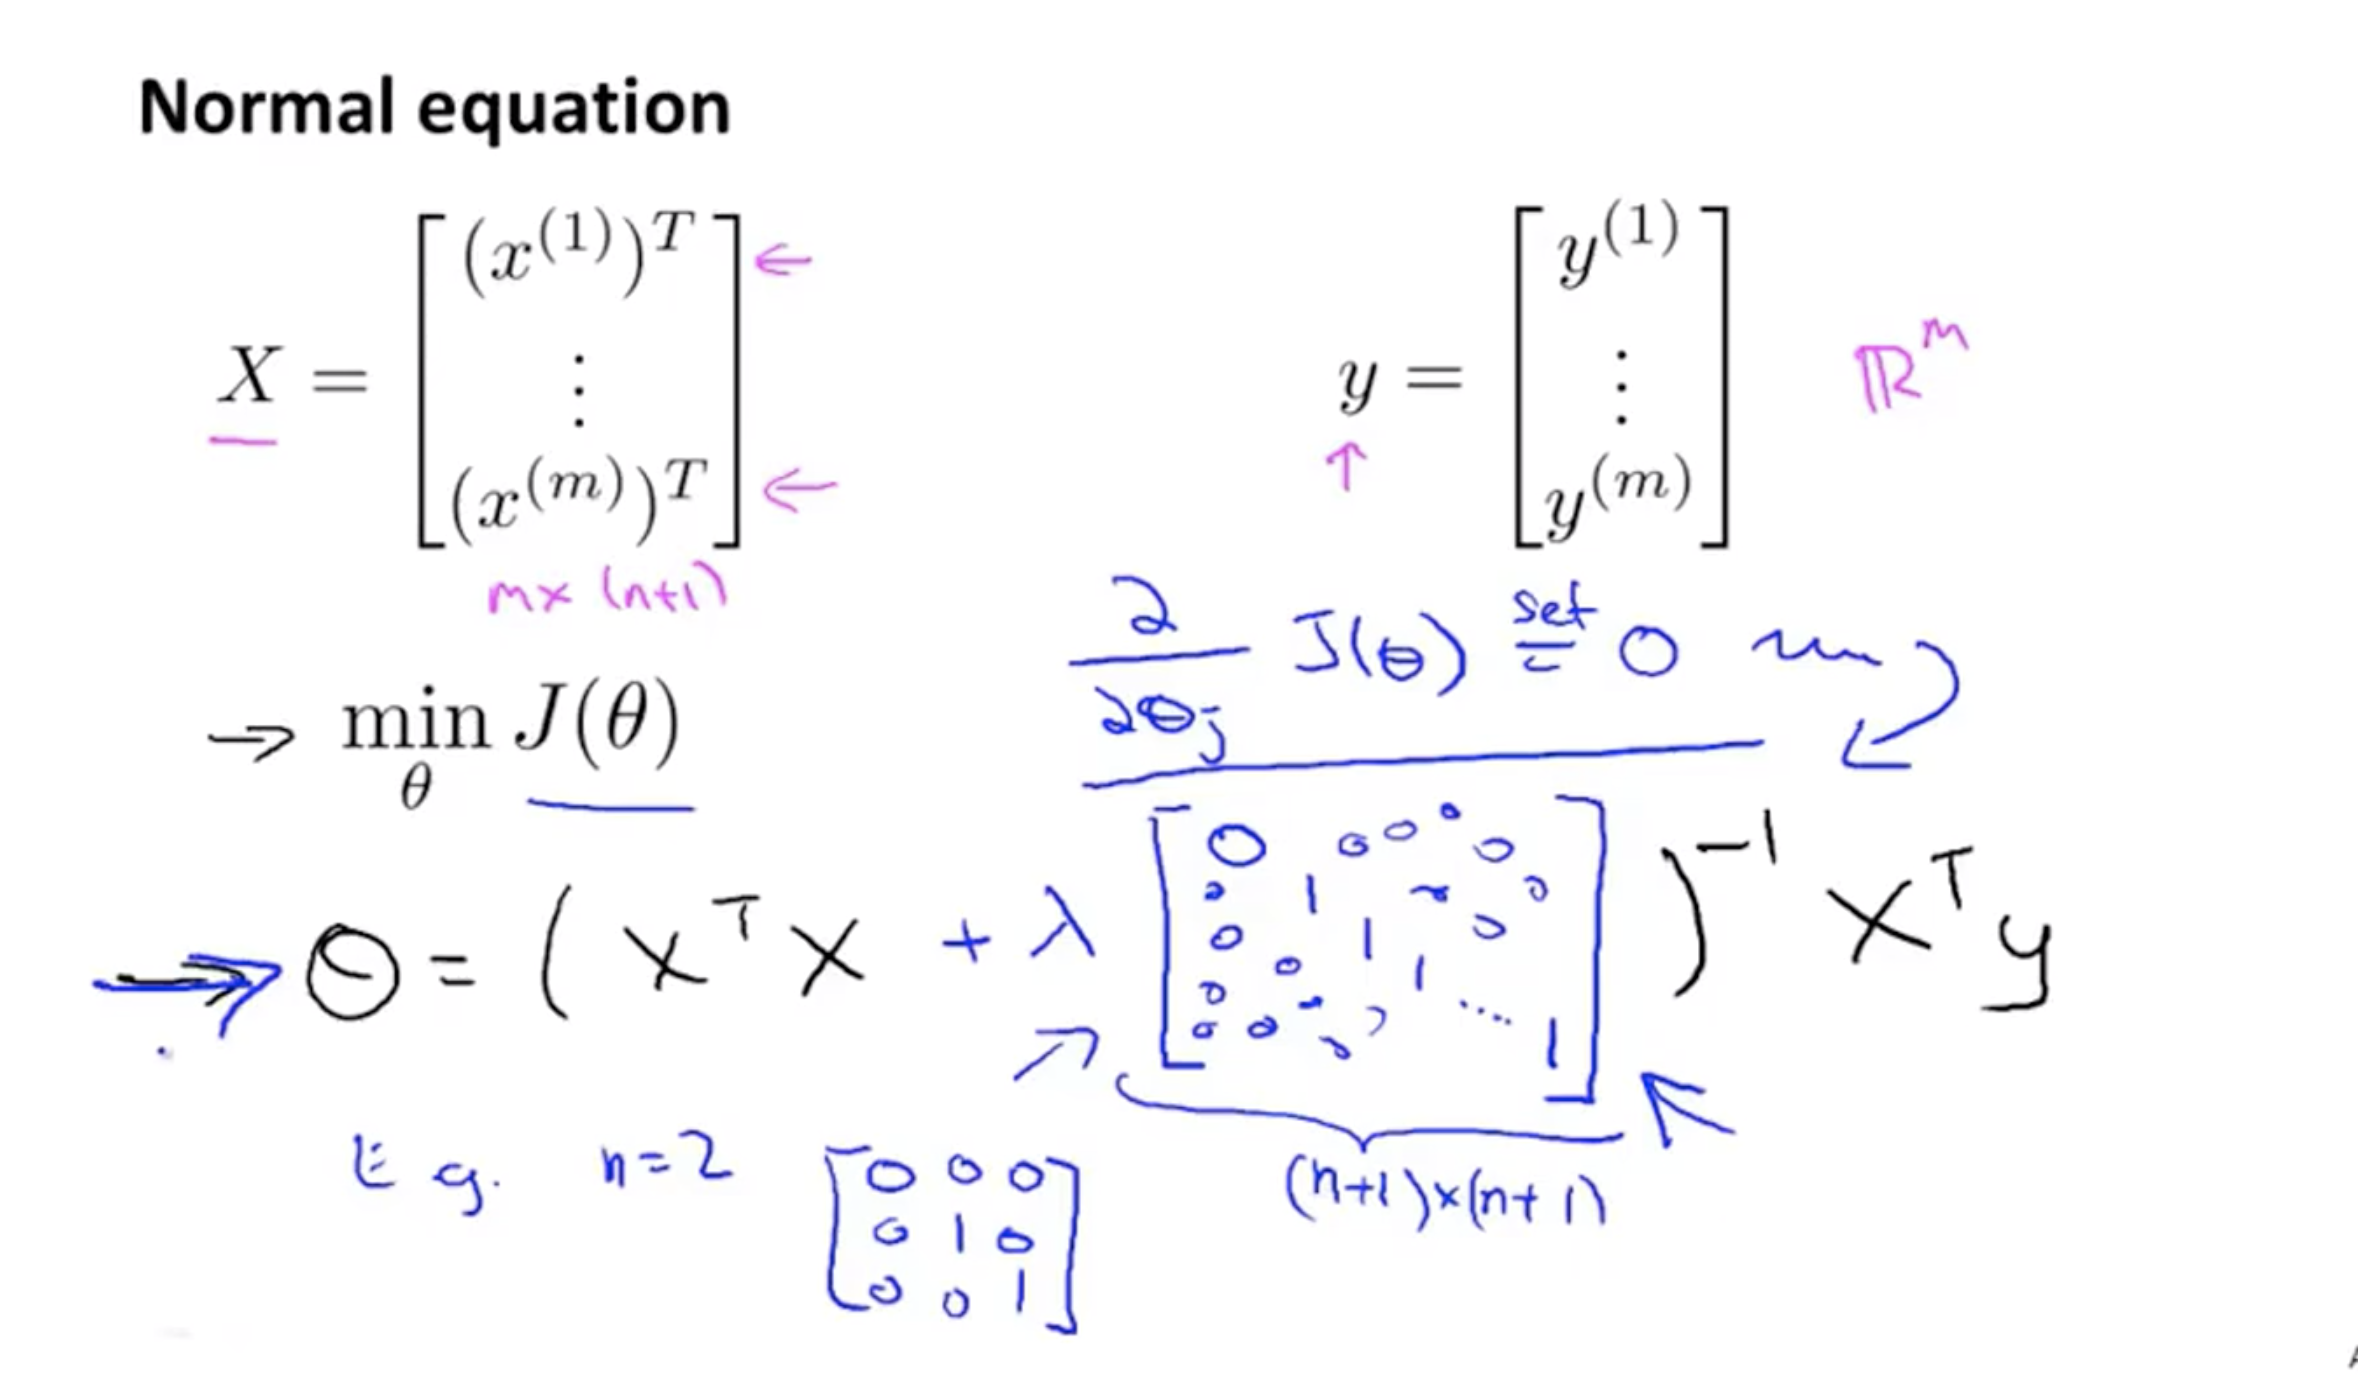 Normal equation
X = [ (x^(1))^T ⋮ (x^(m))^T ] ←  ←
m × (n+1)
y = [ y^(1) ⋮ y^(m) ] ℝ^m
↑
→ min_θ J(θ)
∂/∂θ_j J(θ) set = 0
→ θ = ( X^T X + λ [ 0 0 0 0 0
0 1 0 0
0 1 0
0 0 1
0 0 0 0 .... 1 ] )^-1 X^T y
(n+1)×(n+1)
E.g. n=2 [ 0 0 0
0 1 0
0 0 1 ]